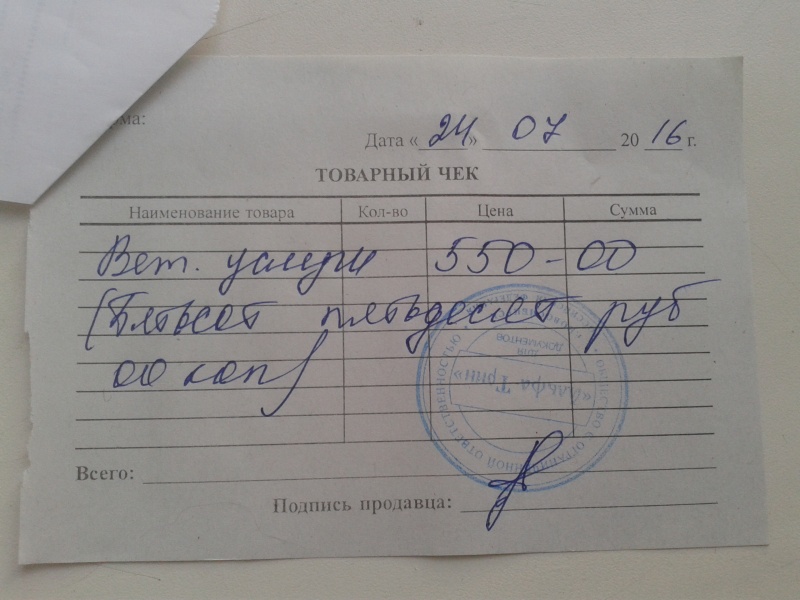 рма:
Дата «24» 07 2016 г.
ТОВАРНЫЙ ЧЕК
Наименование товара Кол-во Цена Сумма
Вет. услуги 550-00
(Пятьсот пятьдесят руб
00 коп)
Всего:
Подпись продавца:
ОБЩЕСТВО С ОГРАНИЧЕННОЙ ОТВЕТСТВЕННОСТЬЮ
«Альфа Грин»
ДЛЯ
ДОКУМЕНТОВ